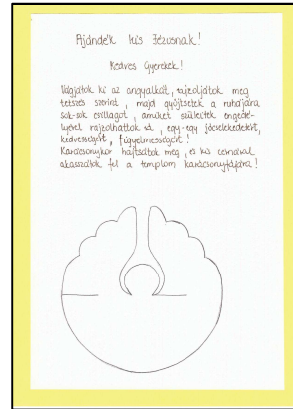 Ajándék kis Jézusnak!
Kedves Gyerekek!
Vágjátok ki az angyalkát, rajzoljátok meg
tetszés szerint, majd gyűjtsetek a ruhájára
sok-sok csillagot, amiket szüleitek engedé-
lyével rajzolhattok rá, egy-egy jócselekedetért,
kedvességért, figyelmességért!
Karácsonykor hajtsátok meg, és kis cérnával
akasszátok fel a templom karácsonyfájára!